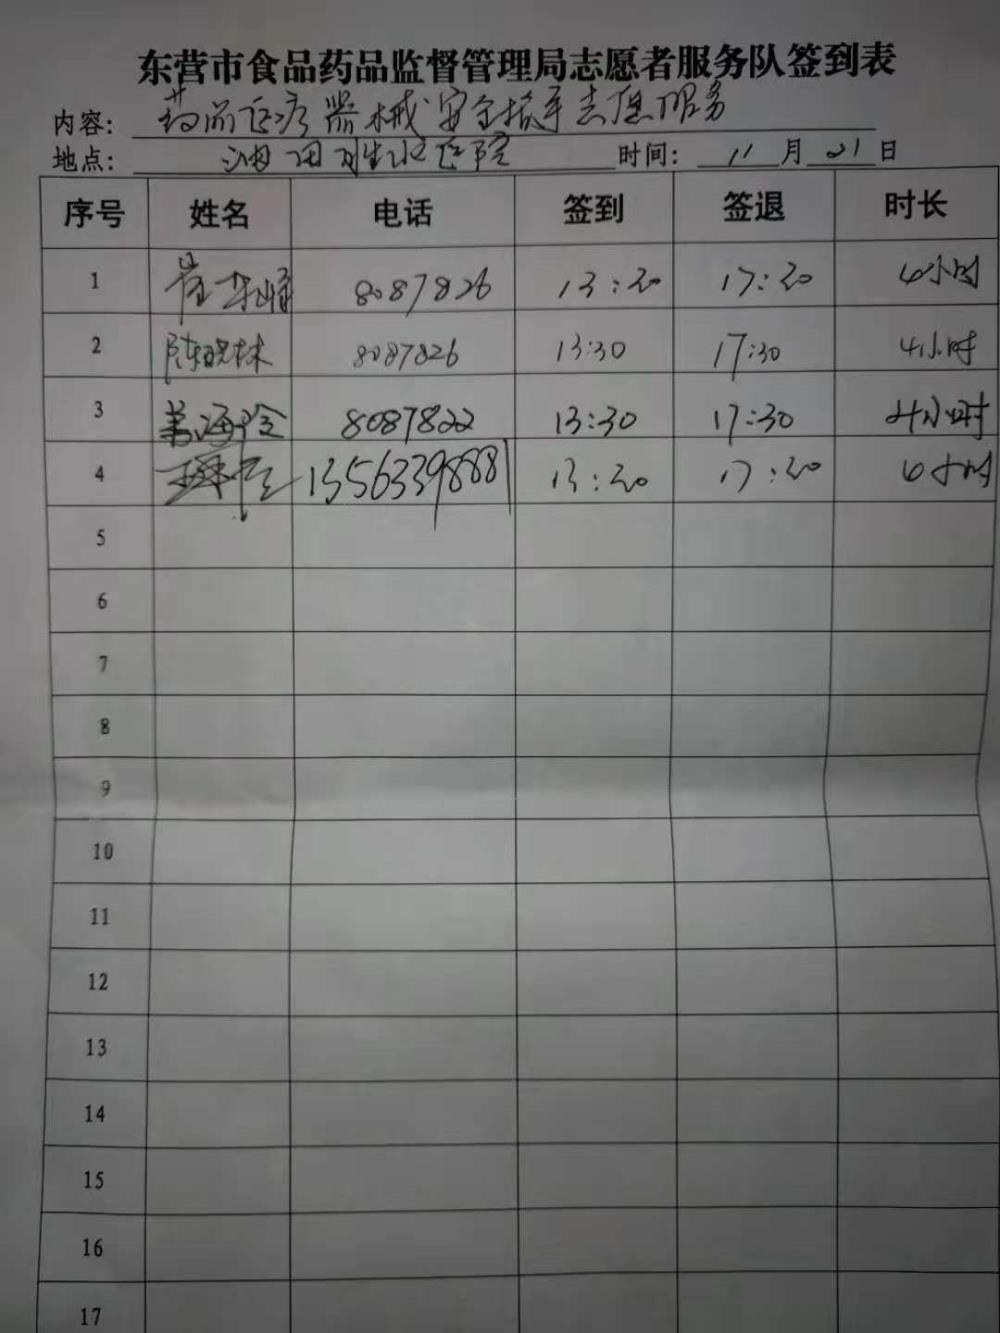 东营市食品药品监督管理局志愿者服务队签到表
内容: 药品医疗器械安全指导志愿服务
地点: 油田 医院 时间: 11月21日
序号 姓名 电话 签到 签退 时长
1 8087826 13:30 17:30 4小时
2 陈晓林 8087826 13:30 17:30 4小时
3 8087822 13:30 17:30 4小时
4 13563398881 13:30 17:30 4小时
5
6
7
8
9
10
11
12
13
14
15
16
17